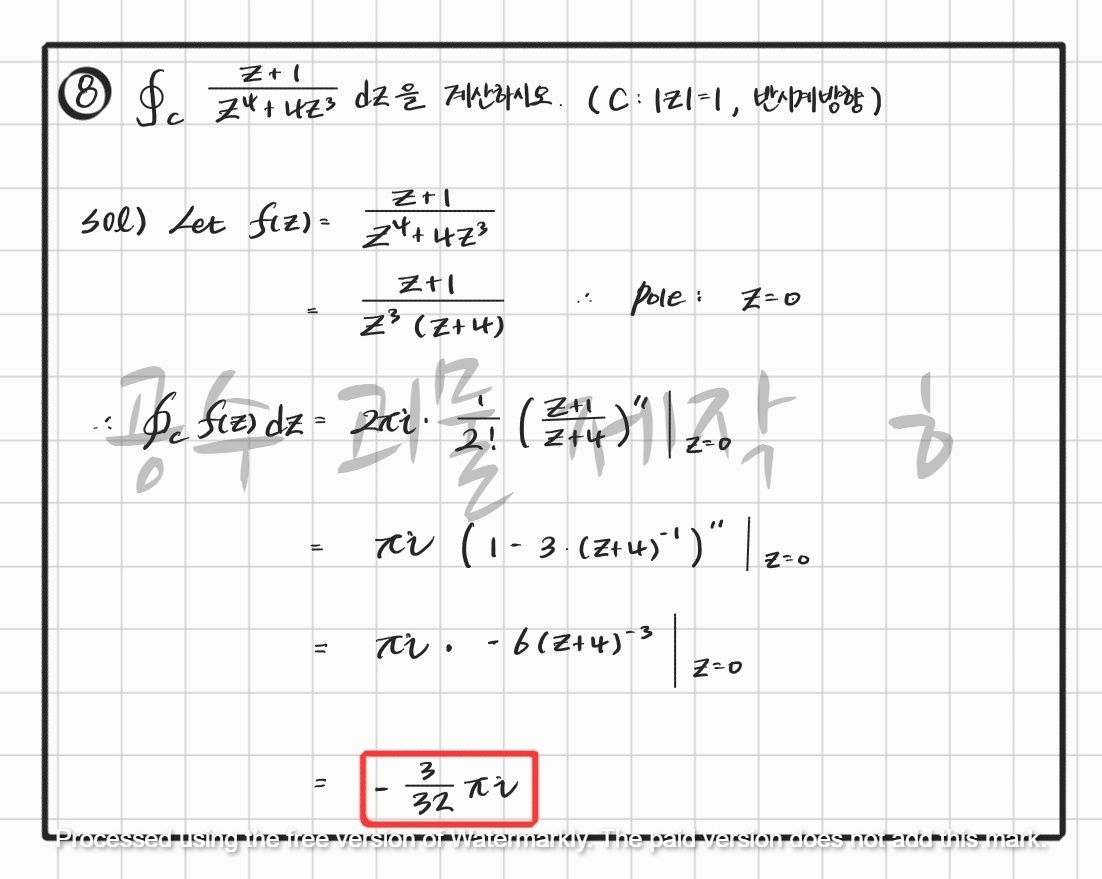 ⑧ ∮_C (z+1)/(z⁴+4z³) dz을 계산하시오. (C : |z|=1, 반시계방향)
sol) Let f(z) = (z+1)/(z⁴+4z³)
= (z+1)/(z³(z+4)) ∴ pole : z=0
∴ ∮_C f(z)dz = 2πi · 1/2! ((z+1)/(z+4))'' |_{z=0}
공수 괴물 제작 ㅎ
= πi (1 - 3·(z+4)⁻¹)'' |_{z=0}
= πi · -6(z+4)⁻³ |_{z=0}
= - 3/32 πi
Processed using the free version of Watermarkly. The paid version does not add this mark.